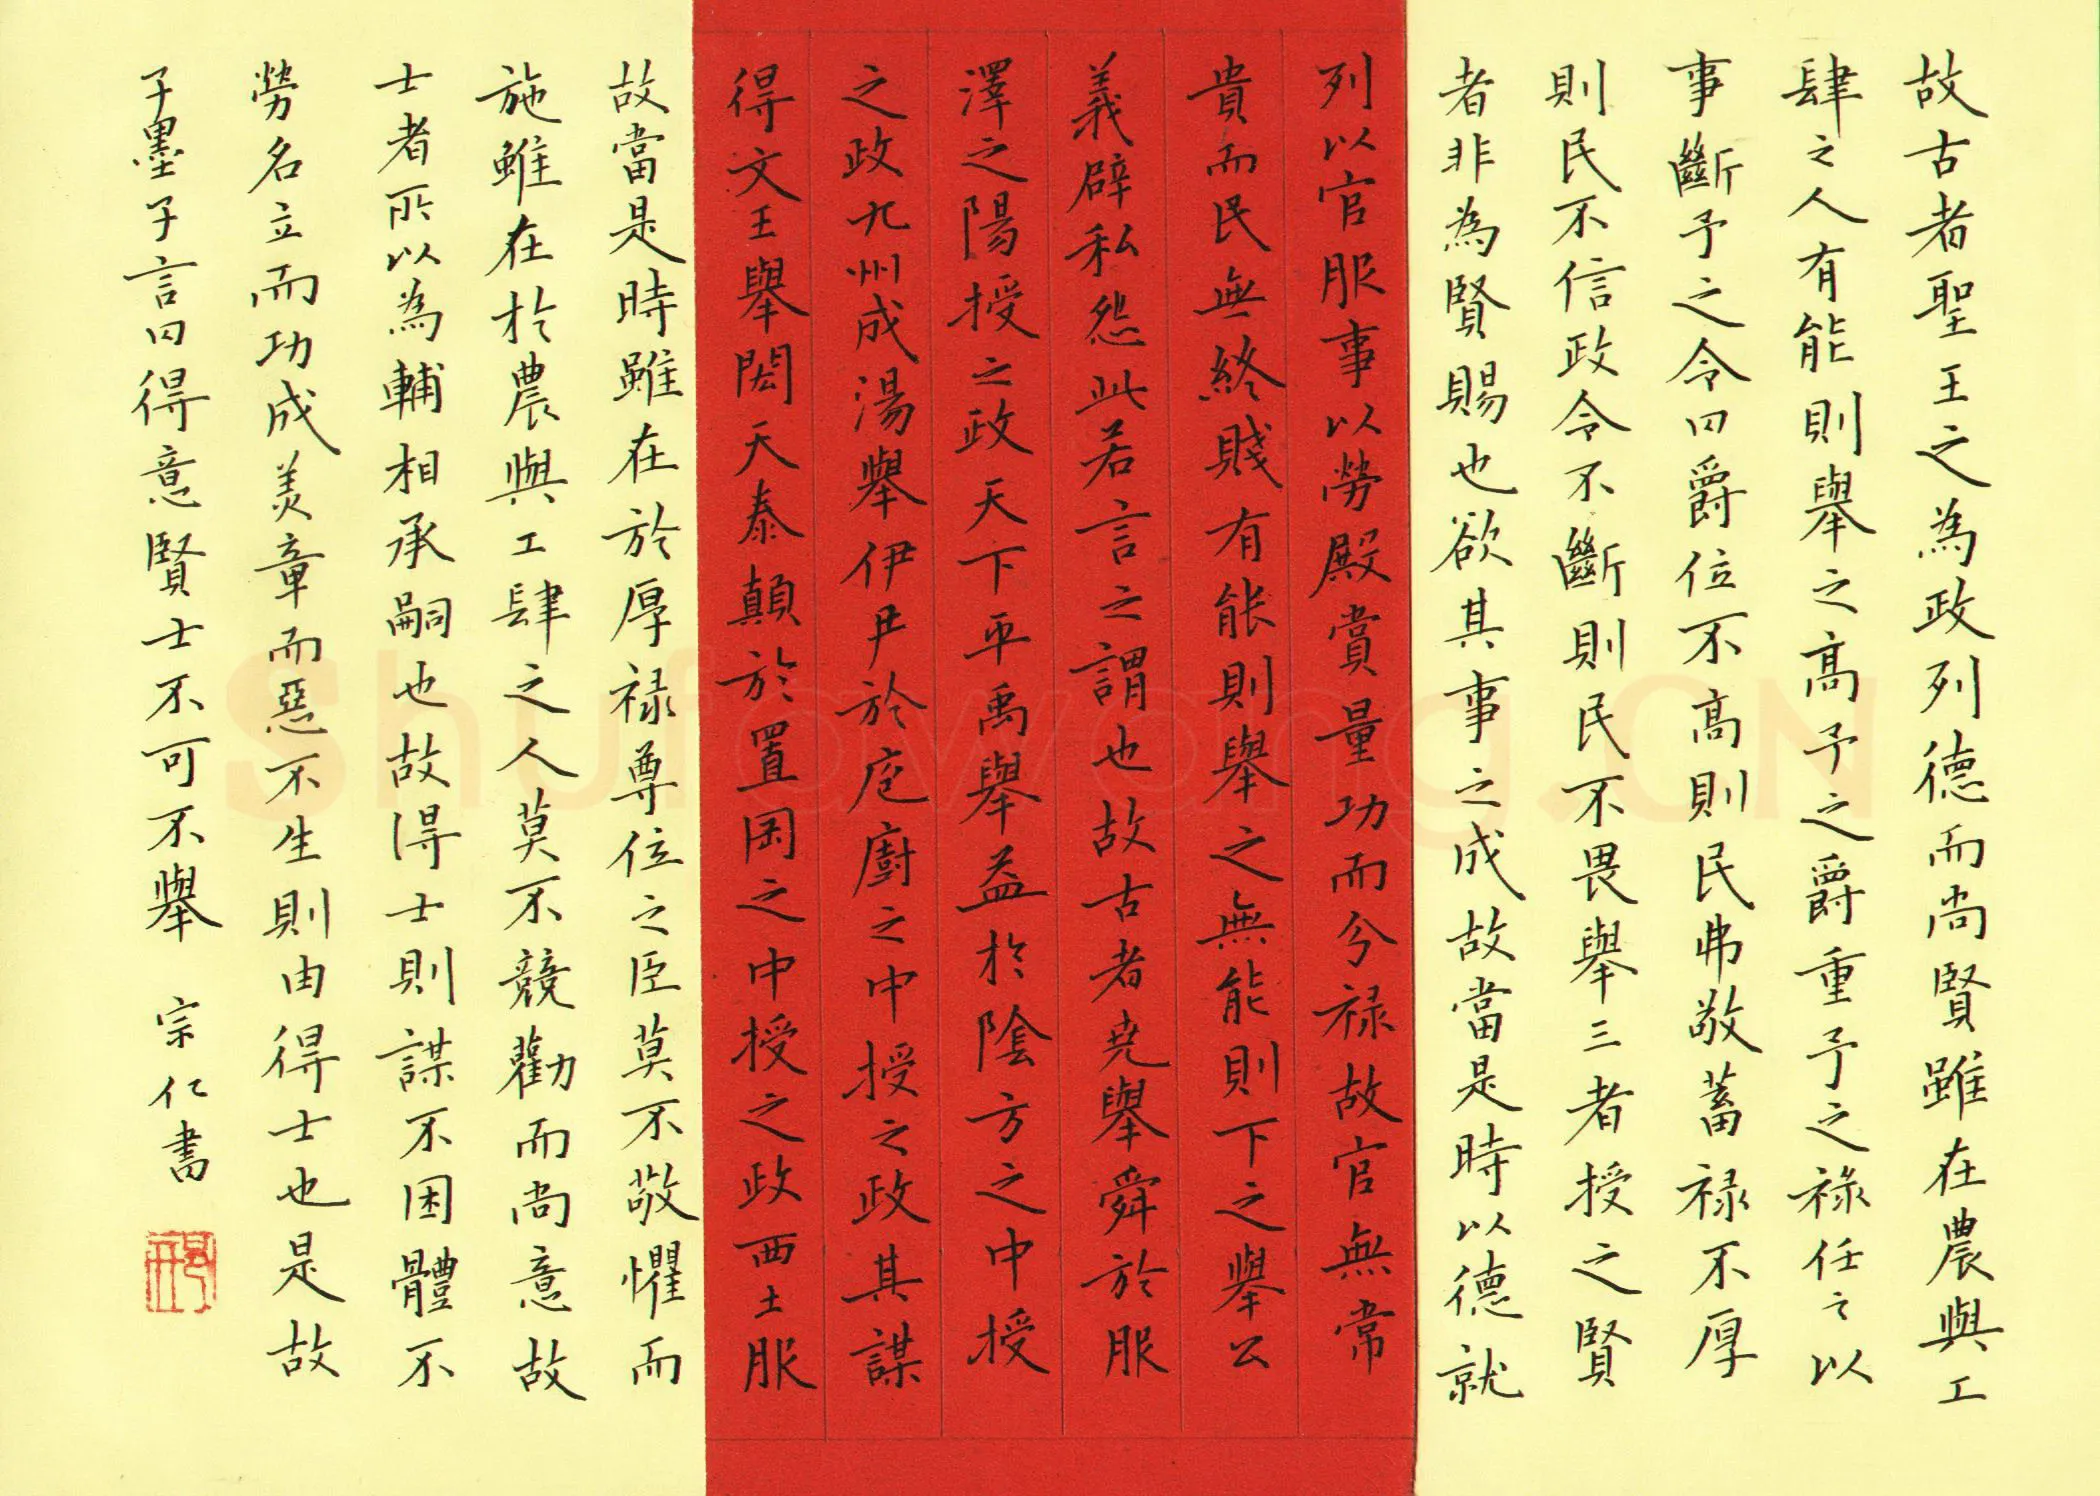 故古者聖王之為政列德而尚賢雖在農與工
肆之人有能則舉之高予之爵重予之祿任之以
事斷予之令曰爵位不高則民弗敬蓄祿不厚
則民不信政令不斷則民不畏舉三者授之賢
者非為賢賜也欲其事之成故當是時以德就
列以官服事以勞殿賞量功而分祿故官無常
貴而民無終賤有能則舉之無能則下之舉公
義辟私怨此若言之謂也故古者堯舉舜於服
澤之陽授之政天下平禹舉益於陰方之中授
之政九州成湯舉伊尹於庖廚之中授之政其謀
得文王舉閎夭泰顛於置罔之中授之政西土服
故當是時雖在於厚祿尊位之臣莫不敬懼而
施雖在於農與工肆之人莫不競勸而尚意故
士者所以為輔相承嗣也故得士則謀不困體不
勞名立而功成美章而惡不生則由得士也是故
子墨子言曰得意賢士不可不舉 宗仁書
Shufawang.CN